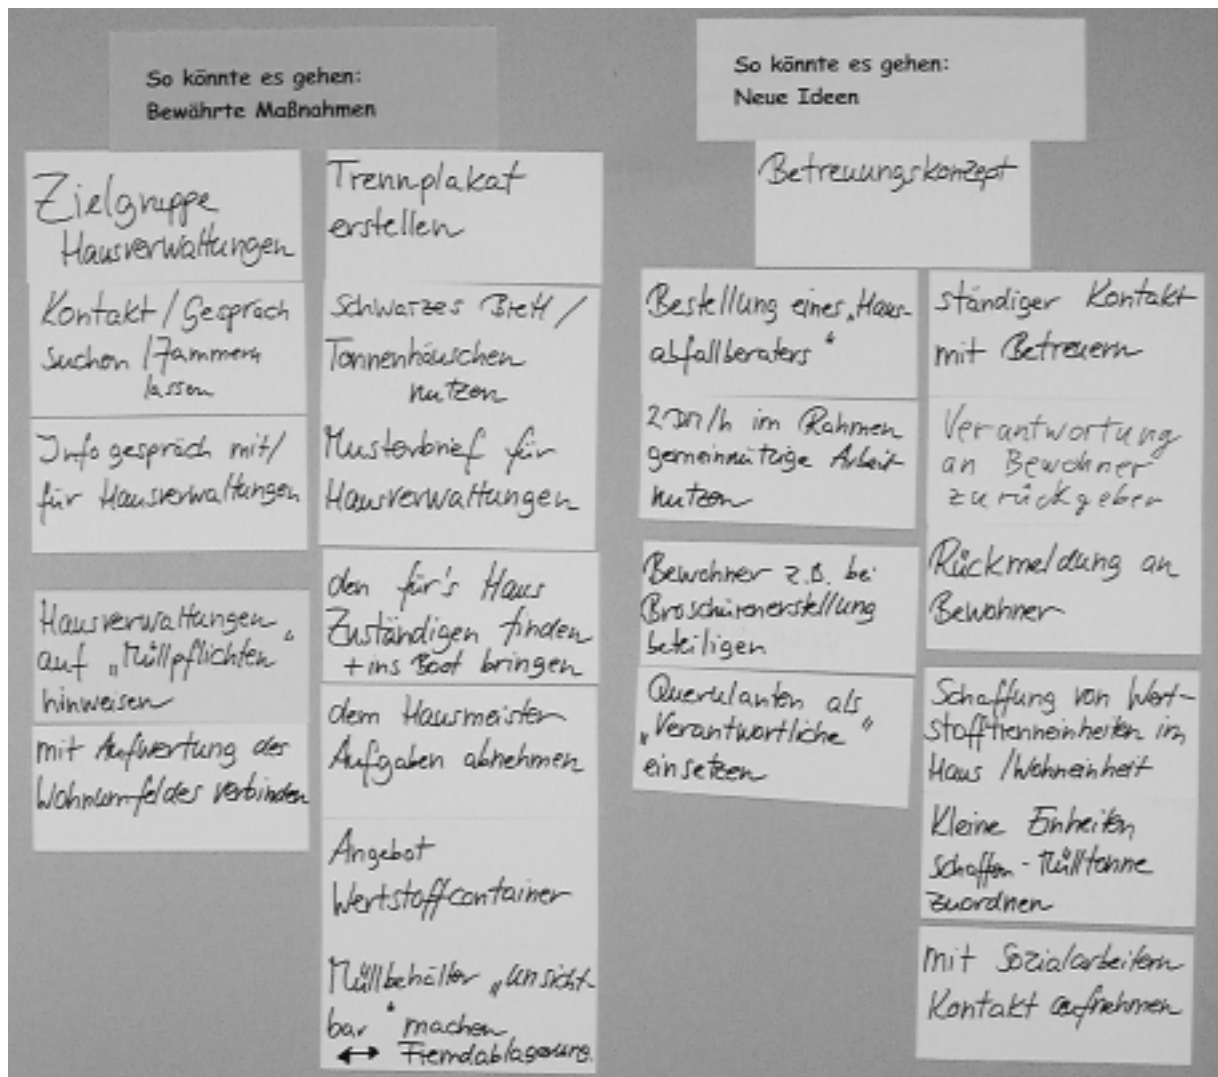 So könnte es gehen:
Bewährte Maßnahmen
Zielgruppe
Hausverwaltungen
Kontakt / Gespräch
suchen / Jammern
lassen
Infogespräch mit/
für Hausverwaltungen
Hausverwaltungen
auf „Müllpflichten“
hinweisen
mit Aufwertung des
Wohnumfeldes verbinden
Trennplakat
erstellen
Schwarzes Brett /
Tonnenhäuschen
nutzen
Musterbrief für
Hausverwaltungen
den für's Haus
Zuständigen finden
+ ins Boot bringen
dem Hausmeister
Aufgaben abnehmen
Angebot
Wertstoffcontainer
Müllbehälter „unsicht-
bar“ machen
↔ Fremdablagerung.
So könnte es gehen:
Neue Ideen
Betreuungskonzept
Bestellung eines „Haus-
abfallberaters“
2 DM/h im Rahmen
gemeinnützige Arbeit
nutzen
Bewohner z.B. bei
Broschürenerstellung
beteiligen
Querulanten als
„Verantwortliche“
einsetzen
ständiger Kontakt
mit Betreuern
Verantwortung
an Bewohner
zurückgeben
Rückmeldung an
Bewohner
Schaffung von Wert-
stofftrenneinheiten im
Haus / Wohneinheit
Kleine Einheiten
schaffen - Mülltonne
zuordnen
mit Sozialarbeitern
Kontakt aufnehmen